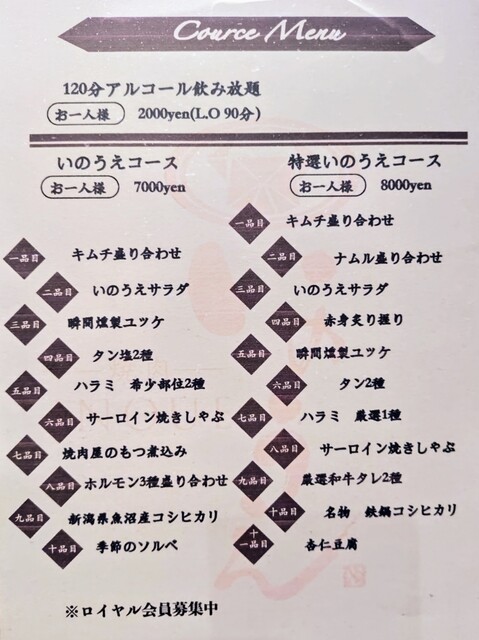 Cource Menu
120分アルコール飲み放題
お一人様 2000yen(L.O 90分)
いのうえコース
お一人様 7000yen
一品目 キムチ盛り合わせ
二品目 いのうえサラダ
三品目 瞬間燻製ユッケ
四品目 タン塩2種
五品目 ハラミ 希少部位2種
六品目 サーロイン焼きしゃぶ
七品目 焼肉屋のもつ煮込み
八品目 ホルモン3種盛り合わせ
九品目 新潟県魚沼産コシヒカリ
十品目 季節のソルベ
特選いのうえコース
お一人様 8000yen
一品目 キムチ盛り合わせ
二品目 ナムル盛り合わせ
三品目 いのうえサラダ
四品目 赤身炙り握り
五品目 瞬間燻製ユッケ
六品目 タン2種
七品目 ハラミ 厳選1種
八品目 サーロイン焼きしゃぶ
九品目 厳選和牛タレ2種
十品目 名物 鉄鍋コシヒカリ
十一品目 杏仁豆腐
※ロイヤル会員募集中